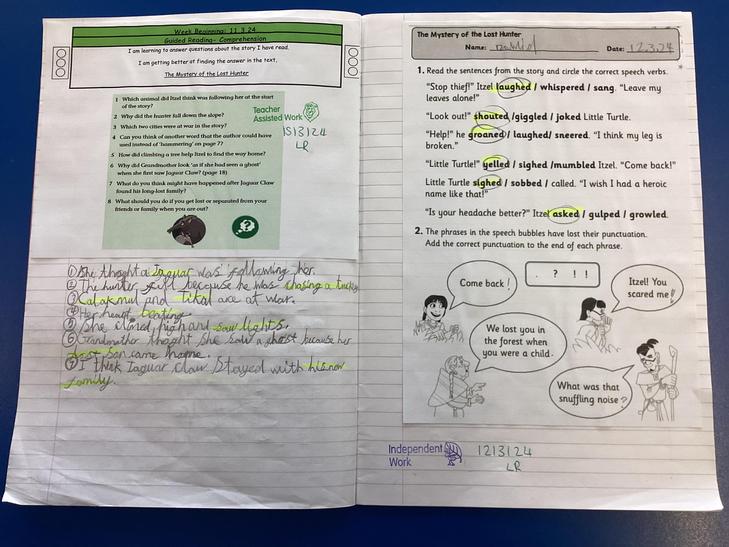 Week Beginning: 11.3.24
Guided Reading- Comprehension
I am learning to answer questions about the story I have read.
I am getting better at finding the answer in the text,
The Mystery of the Lost Hunter
1 Which animal did Itzel think was following her at the start
of the story?
2 Why did the hunter fall down the slope?
3 Which two cities were at war in the story?
4 Can you think of another word that the author could have
used instead of 'hammering' on page 7?
5 How did climbing a tree help Itzel to find the way home?
6 Why did Grandmother look 'as if she had seen a ghost'
when she first saw Jaguar Claw? (page 18)
7 What do you think might have happened after Jaguar Claw
found his long-lost family?
8 What should you do if you get lost or separated from your
friends or family when you are out?
Teacher
Assisted Work
15/3/24
LR
① She thoght a Jaguar was following her.
② The hunter fell because he was chasing a
③ Calakmul and tikal are at war.
④ Her heart beating.
⑤ She climed high and saw lights.
⑥ Grandmother thoght she saw a ghost because her
lost son came home.
⑦ I think Jaguar claw stayed with his
family.
The Mystery of the Lost Hunter
Name: Date: 12.3.24
1. Read the sentences from the story and circle the correct speech verbs.
"Stop thief!" Itzel laughed / whispered / sang. "Leave my
leaves alone!"
"Look out!" shouted /giggled / joked Little Turtle.
"Help!" he groaned / laughed/ sneered. "I think my leg is
broken."
"Little Turtle!" yelled / sighed /mumbled Itzel. "Come back!"
Little Turtle sighed / sobbed / called. "I wish I had a heroic
name like that!"
"Is your headache better?" Itzel asked / gulped / growled.
2. The phrases in the speech bubbles have lost their punctuation.
Add the correct punctuation to the end of each phrase.
. ? ! !
Come back!
Itzel! You
scared me!
We lost you in
the forest when
you were a child.
What was that
snuffling noise?
Independent
Work
12/3/24
LR